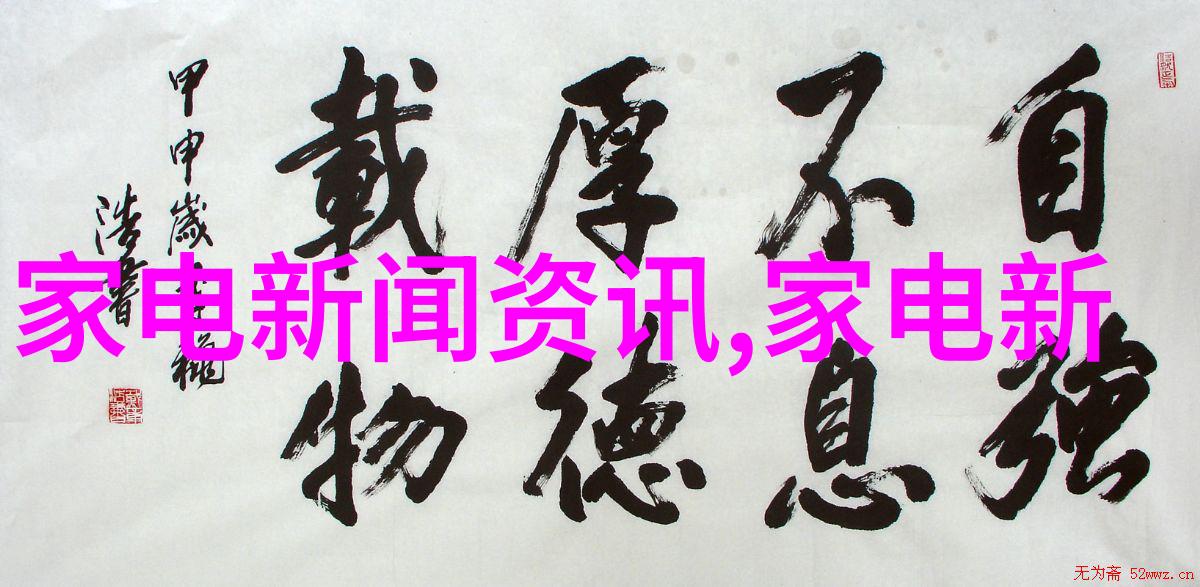 自強
不息
厚德
載物
甲申歲
浩書
家电新闻资讯,家电新
无为斋 52wwz.cn